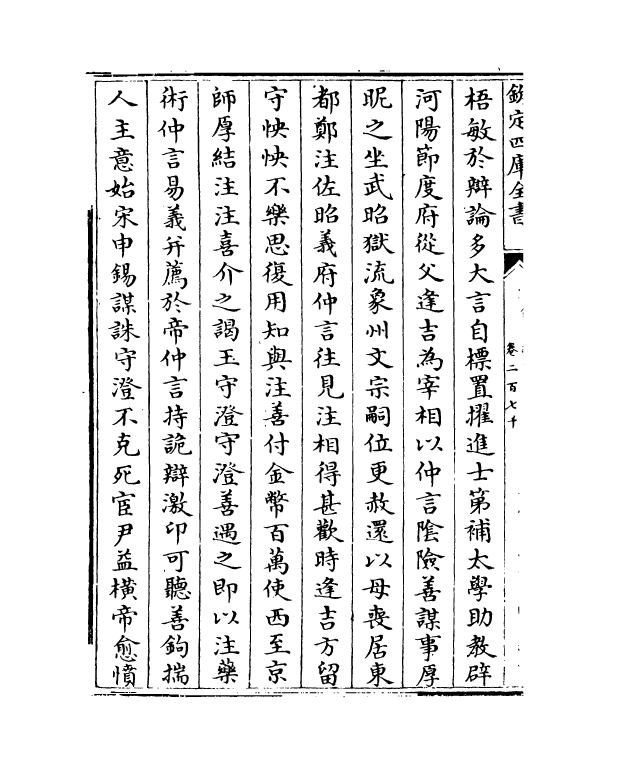 欽定四庫全書
卷二百七十
梧敏於辯論多大言自標置擢進士第補太學助教辟
河陽節度府從父逢吉為宰相以仲言陰險善謀事厚
昵之坐武昭獄流象州文宗嗣位更赦還以母喪居東
都鄭注佐昭義府仲言往見注相得甚歡時逢吉方留
守怏怏不樂思復用知與注善付金幣百萬使西至京
師厚結注注喜介之謁王守澄守澄善遇之即以注藥
術仲言易義并薦於帝仲言持詭辯激卬可聽善鉤揣
人主意始宋申錫謀誅守澄不克死宦尹益橫帝愈憤